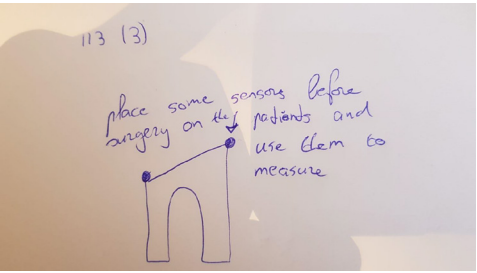 113 (3)
place some sensors before
surgery on the patients and
use them to
measure